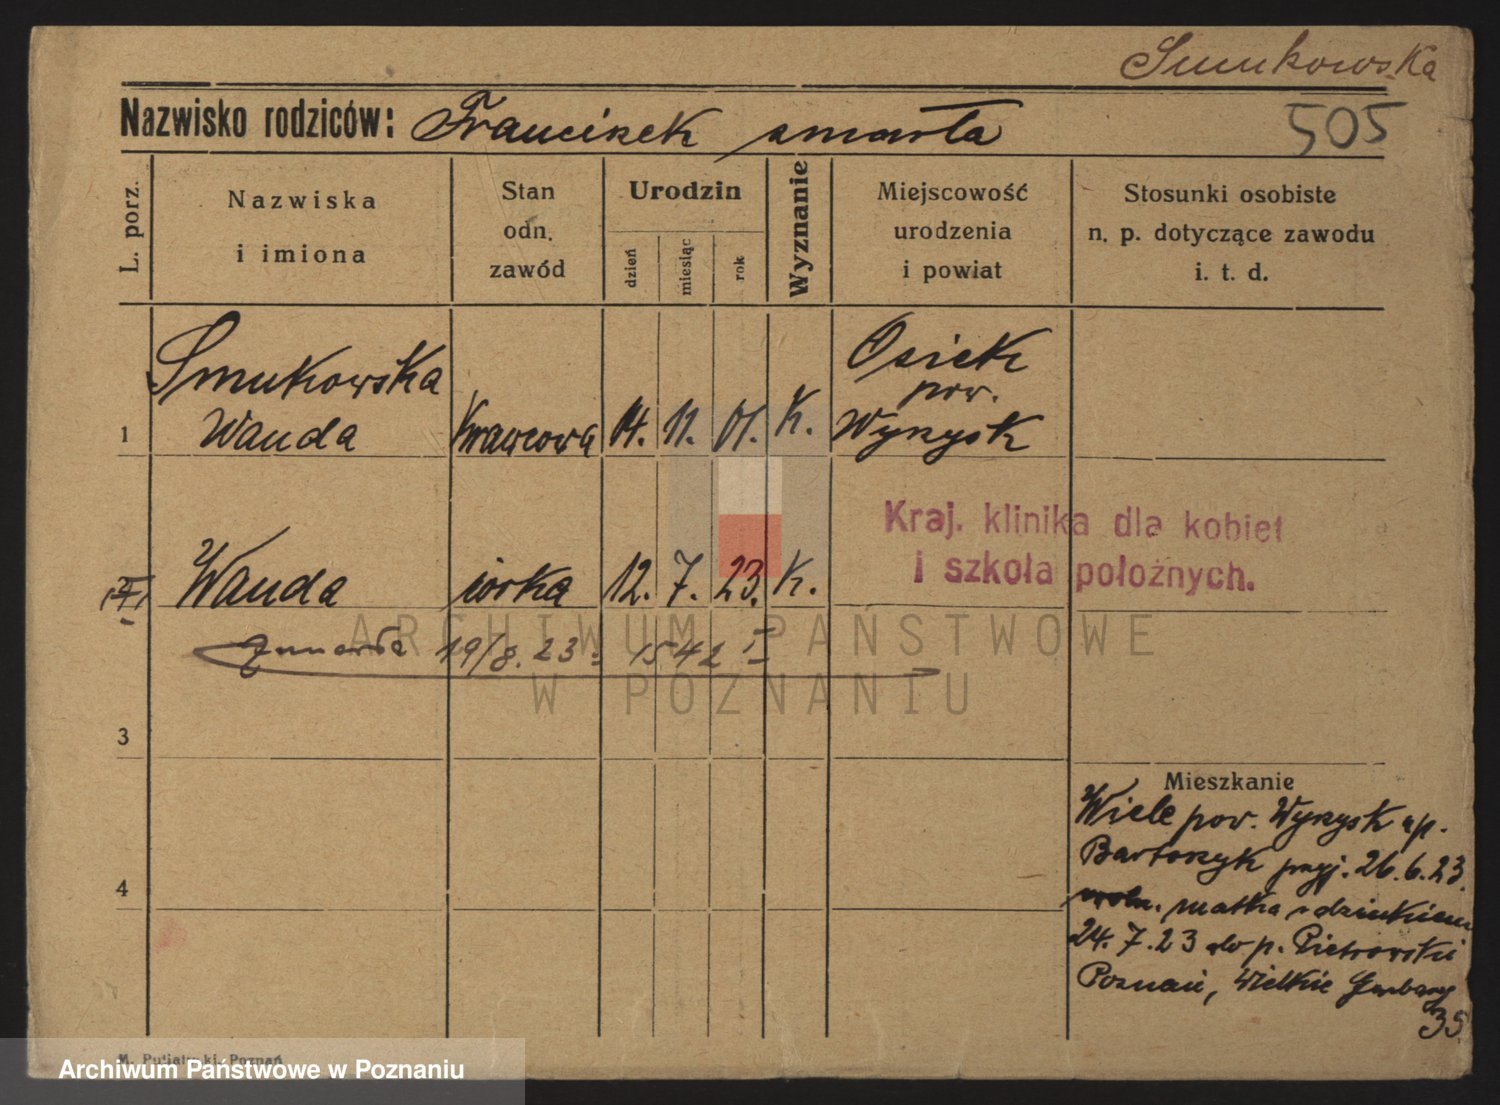 Smukowska
Nazwisko rodziców: Franciszek zmarła
505
L. porz.
Nazwiska
i imiona
Stan
odn.
zawód
Urodzin
dzień
miesiąc
rok
Wyznanie
Miejscowość
urodzenia
i powiat
Stosunki osobiste
n. p. dotyczące zawodu
i. t. d.
1 Smukowska
Wanda
Krawcowa
14. 11. 01. K.
Osiek
pow.
Wyrzysk
Kraj. klinika dla kobiet
i szkoła położnych.
Wanda córka 12. 7. 23. K.
Zmarła 19/8. 23. 1542 I
ARCHIWUM PAŃSTWOWE
W POZNANIU
3
4
Mieszkanie
Wiele pow. Wyrzysk up.
Bartoszyk przyj. 26.6.23.
matka z dzieckiem
24.7.23 do p. Pietrowski
Poznań, Wielkie Garbary
35
M. Putiatycki, Poznań
Archiwum Państwowe w Poznaniu